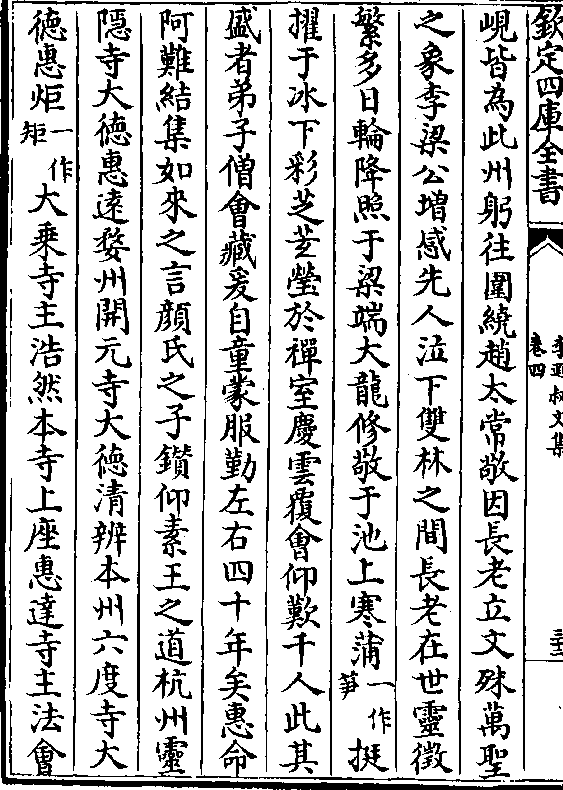 欽定四庫全書
李遐叔文集
卷四
峴皆為此州躬往圍繞趙太常敬因長老立文殊萬聖
之象李梁公增感先人泣下雙林之間長老在世靈徵
繁多日輪降照于梁端大龍修敬于池上寒蒲一作笋挺
擢于冰下彩芝䒷瑩於禪室慶雲覆會仰歎千人此其
盛者弟子僧會藏爰自童蒙服勤左右四十年矣惠命
阿難結集如來之言顔氏之子鑚仰素王之道杭州靈
隱寺大德惠逺婺州開元寺大德清辨本州六度寺大
德惠炬一作矩大乗寺主浩然本寺上座惠達寺主法會